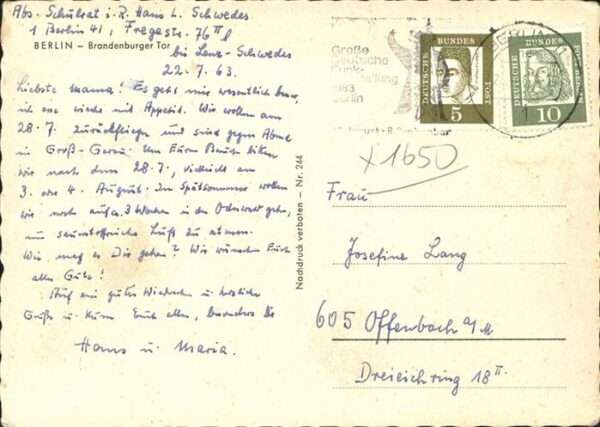 Abs. Schulrat i. R. Hans L. Schwedes
1 Berlin 41, Fregestr. 76 II l
BERLIN – Brandenburger Tor
bei Lenz-Schwedes
22.7.63.
Liebste Mama! Es geht mir wesentlich besser,
ich esse wieder mit Appetit. Wir wollen am
28.7. zurückfliegen und sind gegen Abend
in Groß-Gerau. Um Euren Besuch bitten
wir nach dem 28.7., vielleicht am
3. oder 4. August. Im Spätsommer wollen
wir noch auf ca. 3 Wochen in den Odenwald gehen,
um sauerstoffreiche Luft zu atmen.
Wie mag es Dir gehen? Wir wünschen Euch
alles Gute!
Auf ein gutes Wiedersehen u. herzliche
Grüße u. Küsse Euch allen, besonders Dir
Hans u. Maria.
Nachdruck verboten – Nr. 244
Große
Deutsche
Funk-
1963
Berlin
DEUTSCHE BUNDESPOST
5
DEUTSCHE BUNDESPOST
10
BERLIN
x1650
Frau
Josefine Lang
605 Offenbach a/M
Dreieichring 18 II.